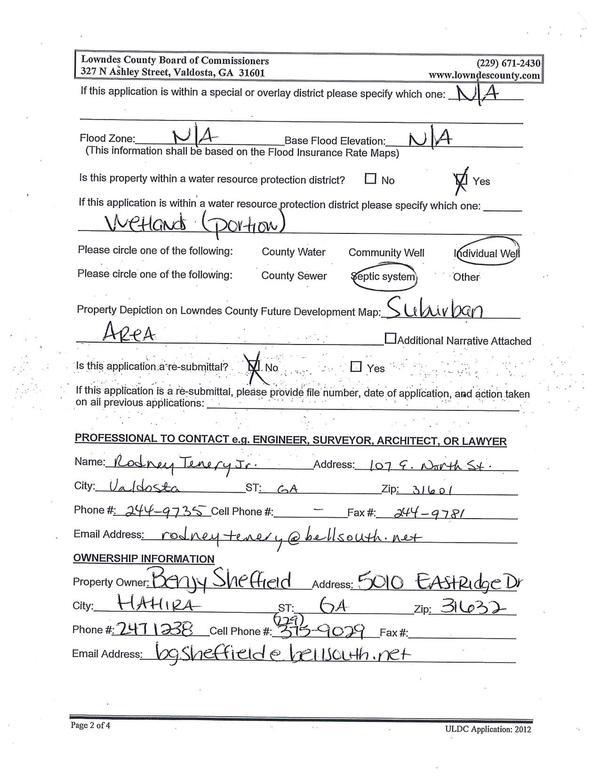 Lowndes County Board of Commissioners (229) 671-2430
327 N Ashley Street, Valdosta, GA 31601 www.lowndescounty.com
If this application is within a special or overlay district please specify which one: N/A
Flood Zone: N/A Base Flood Elevation: N/A
(This information shall be based on the Flood Insurance Rate Maps)
Is this property within a water resource protection district? ☐ No ☒ Yes
If this application is within a water resource protection district please specify which one:
Wetland (portion)
Please circle one of the following: County Water Community Well Individual Well
Please circle one of the following: County Sewer Septic system Other
Property Depiction on Lowndes County Future Development Map: Suburban
AREA ☐ Additional Narrative Attached
Is this application a re-submittal? ☒ No ☐ Yes
If this application is a re-submittal, please provide file number, date of application, and action taken
on all previous applications:
PROFESSIONAL TO CONTACT e.g. ENGINEER, SURVEYOR, ARCHITECT, OR LAWYER
Name: Rodney Tenery Jr. Address: 107 E. North St.
City: Valdosta ST: GA Zip: 31601
Phone #: 244-9735 Cell Phone #: - Fax #: 244-9781
Email Address: rodneytenery@bellsouth.net
OWNERSHIP INFORMATION
Property Owner: Benjy Sheffield Address: 5010 EASTRidge Dr
City: HAHIRA ST: GA Zip: 31632
Phone #: 2471238 Cell Phone #: (229) 375-9029 Fax #:
Email Address: bgsheffield@bellsouth.net
Page 2 of 4 ULDC Application: 2012